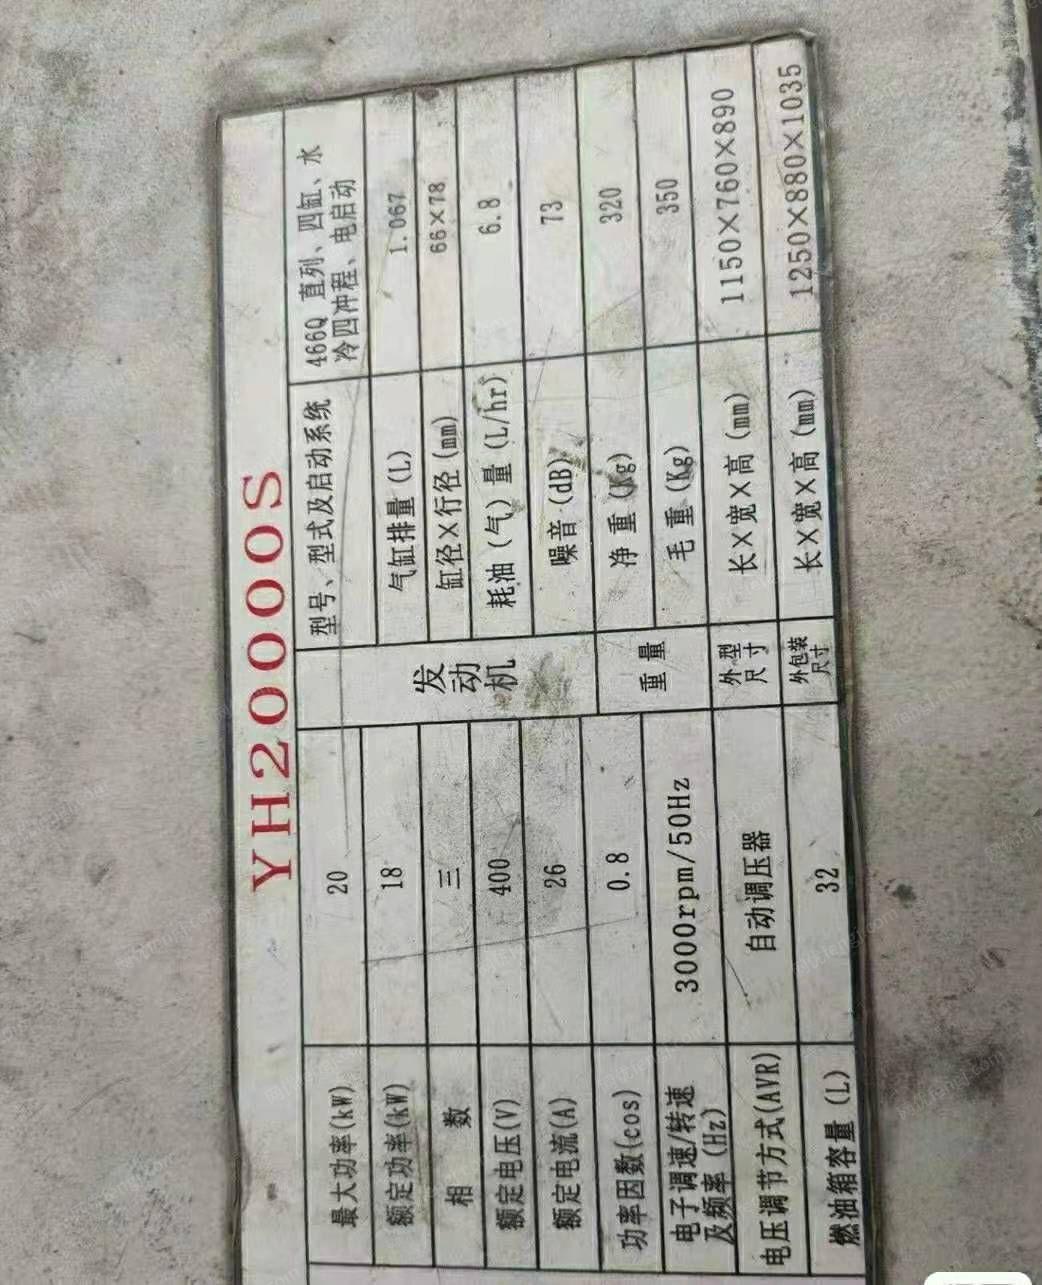 YH20000S
最大功率(kW) 20
额定功率(kW) 18
相 数 三
额定电压(V) 400
额定电流(A) 26
功率因数(cos) 0.8
电子调速/转速
及频率(Hz) 3000rpm/50Hz
电压调节方式(AVR) 自动调压器
燃油箱容量(L) 32
发动机
型号、型式及启动系统 466Q 直列、四缸、水
冷四冲程、电启动
气缸排量(L) 1.067
缸径×行径(mm) 66×78
耗油(气)量(L/hr) 6.8
噪音(dB) 73
重量
净 重(Kg) 320
毛 重(Kg) 350
外型
尺寸
长×宽×高(mm) 1150×760×890
外包装
尺寸
长×宽×高(mm) 1250×880×1035